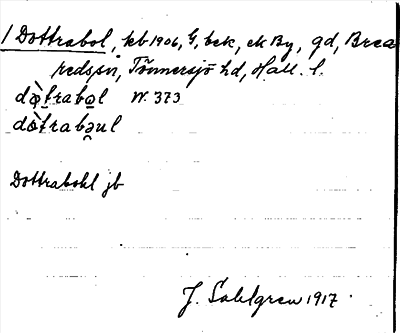 / Dottrabol, kb 1906, G, bck, ek By, gd, Brea
redssn, Tönnersjö hd, Hall. l.
dò̤trabo̤l W. 373
dòtrabə̯ul
Dottrabohl jb
J. Sahlgren 1917.